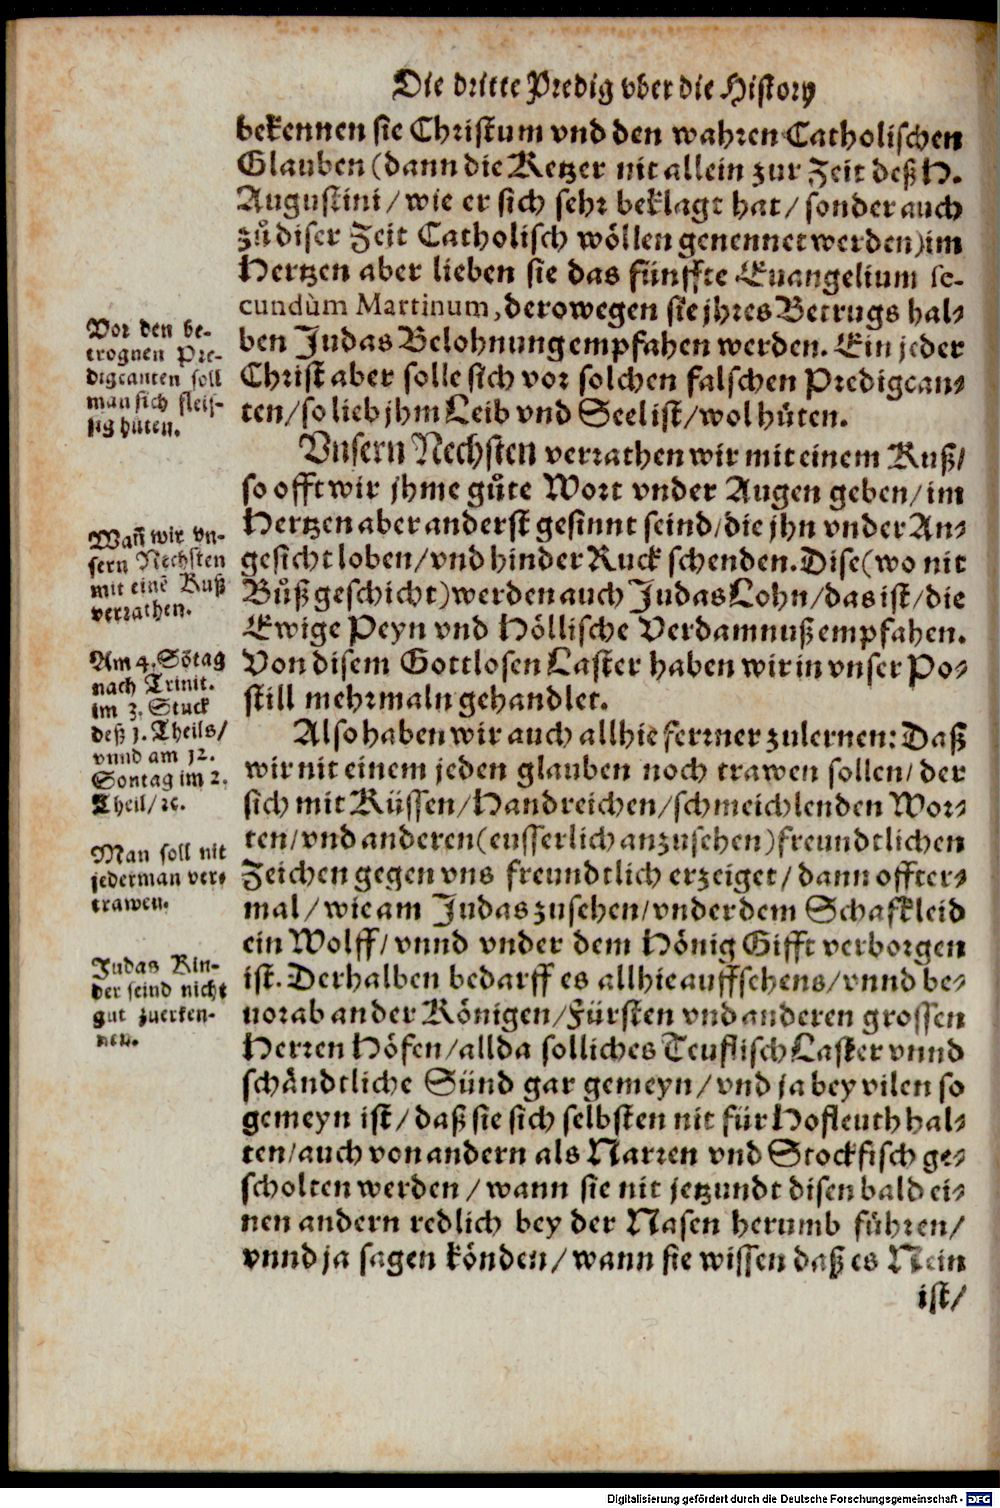 Die dritte Predig vber die History
bekennen sie Christum vnd den wahren Catholischen
Glauben (dann die Ketzer nit allein zur Zeit deß H.
Augustini / wie er sich sehr beklagt hat / sonder auch
zů diser Zeit Catholisch wöllen genennet werden) im
Hertzen aber lieben sie das fünffte Euangelium se-
cundùm Martinum, derowegen sie jhres Betrugs hal-
ben Judas Belohnung empfahen werden. Ein jeder
Christ aber solle sich vor solchen falschen Predigcan-
ten / so lieb jhm Leib vnd Seel ist / wol hůten.
Vnsern Nechsten verrathen wir mit einem Kuß /
so offt wir jhme gůte Wort vnder Augen geben / im
Hertzen aber anderst gesinnt seind / die jhn vnder An-
gesicht loben / vnd hinder Ruck schenden. Dise (wo nit
Bůß geschicht) werden auch Judas Lohn / das ist / die
Ewige Peyn vnd Höllische Verdamnuß empfahen.
Von disem Gottlosen Laster haben wir in vnser Po-
still mehrmaln gehandlet.
Also haben wir auch allhie ferrner zulernen: Daß
wir nit einem jeden glauben noch trawen sollen / der
sich mit Küssen / Handreichen / schmeichlenden Wor-
ten / vnd anderen (eusserlich anzusehen) freundtlichen
Zeichen gegen vns freundtlich erzeiget / dann offter-
mal / wie am Judas zusehen / vnder dem Schafkleid
ein Wolff / vnnd vnder dem Hönig Gifft verborgen
ist. Derhalben bedarff es allhie auffsehens / vnnd be-
uorab an der Königen / Fürsten vnd anderen grossen
Herren Höfen / allda solliches Teuflisch Laster vnnd
schändtliche Sünd gar gemeyn / vnd ja bey vilen so
gemeyn ist / daß sie sich selbsten nit für Hofleuth hal-
ten / auch von andern als Narren vnd Stockfisch ge-
scholten werden / wann sie nit jetzundt disen bald ei-
nen andern redlich bey der Nasen herumb führen /
vnnd ja sagen könden / wann sie wissen daß es Nein
ist /
Vor den be-
trognen Pre-
digcanten soll
man sich fleis-
sig hůten.
Wañ wir vn-
sern Nechsten
mit einē Kuß
verrathen.
Am 4. Sõtag
nach Trinit.
im 3. Stuck
deß 1. Theils /
vnnd am 12.
Sontag im 2.
Theil / ꝛc.
Man soll nit
jederman ver-
trawen.
Judas Kin-
der seind nicht
gut zuerken-
nen.
Digitalisierung gefördert durch die Deutsche Forschungsgemeinschaft - DFG